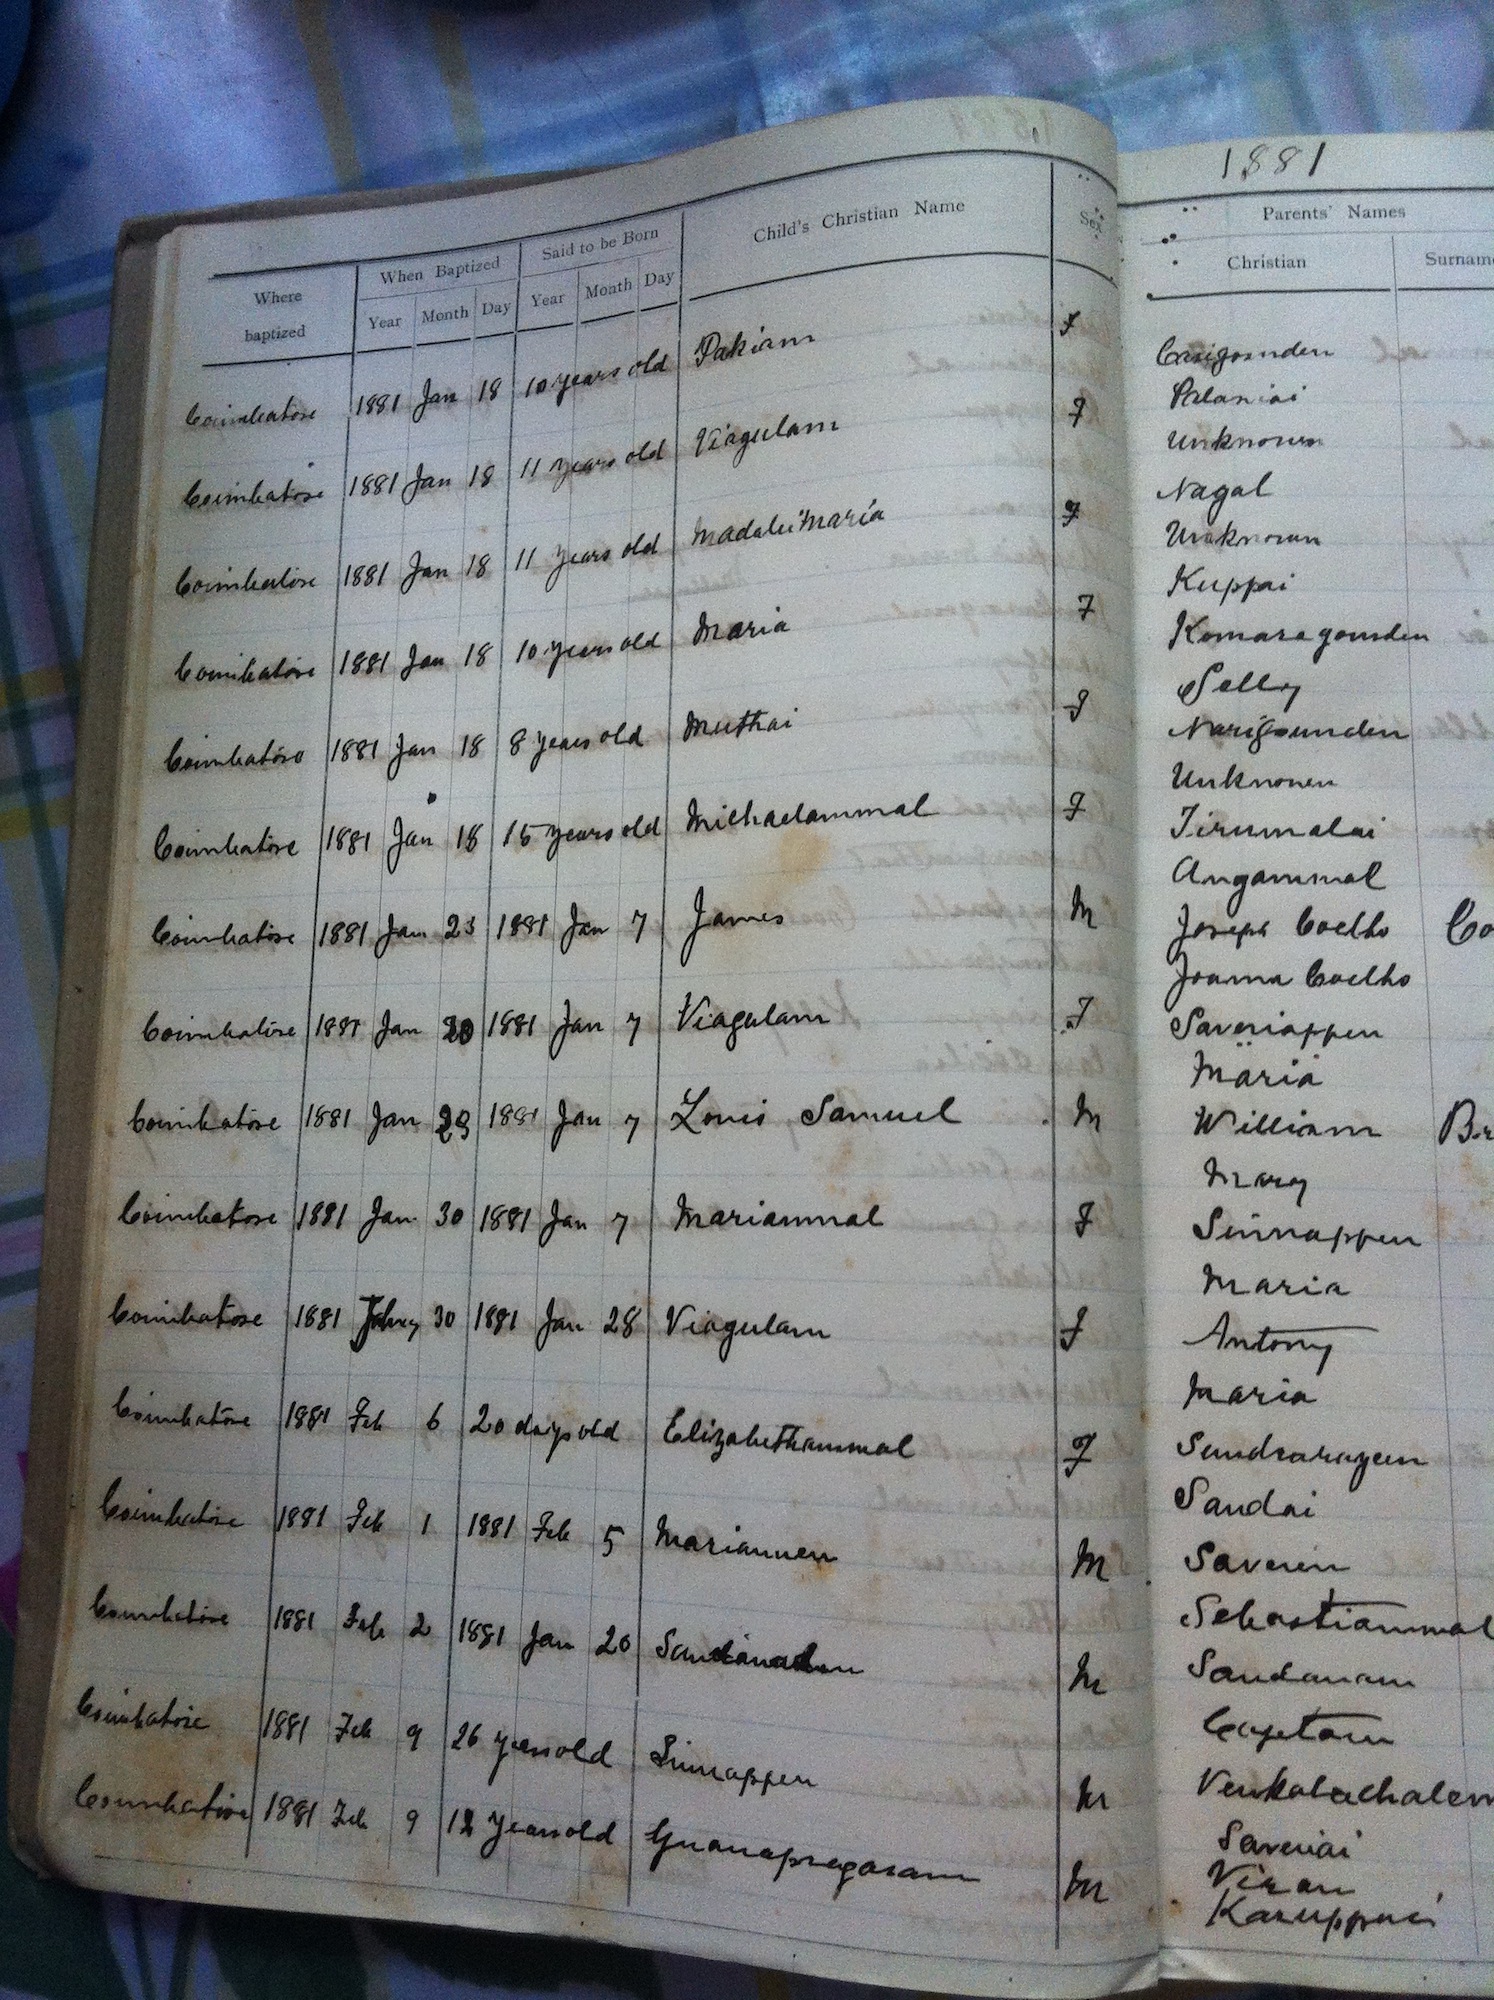 1881
Where baptized | When Baptized | Said to be Born | Child's Christian Name | Sex | Parents' Names
Year | Month | Day | Year | Month | Day | Christian | Surname
Coimbatore 1881 Jan 18 10 years old Pakiam F
Palaniai
Coimbatore 1881 Jan 18 11 years old Viagulam F Unknown
Nagal
Coimbatore 1881 Jan 18 11 years old Madalei Maria F Unknown
Kuppai
Coimbatore 1881 Jan 18 10 years old Maria F Komaragounden
Selly
Coimbatore 1881 Jan 18 8 years old Muthai F Narigounden
Unknown
Coimbatore 1881 Jan 18 15 years old Michaelammal F Tirumalai
Angammal
Coimbatore 1881 Jan 23 1881 Jan 7 James M Joseph Coelho Co
Joanna Coelho
Coimbatore 1881 Jan 30 1881 Jan 7 Viagulam F Saveriappen
Maria
Coimbatore 1881 Jan 29 1881 Jan 7 Louis Samuel M William
Mary
Coimbatore 1881 Jan 30 1881 Jan 7 Mariammal F Sinnappen
Maria
Coimbatore 1881 30 1881 Jan 28 Viagulam F Antony
Maria
Coimbatore 1881 Feb 6 20 days old Elizabethammal F Sundrarayen
Sandai
Coimbatore 1881 Feb 1 1881 Feb 5 Mariannen M Saverin
Sebastiammal
Coimbatore 1881 Feb 2 1881 Jan 20 M Sandanam
Coimbatore 1881 Feb 9 26 years old Sinnappen M Venkatachalem
Saveriai
Coimbatore 1881 Feb 9 12 years old Gnanapregasam M Viran
Karuppaei